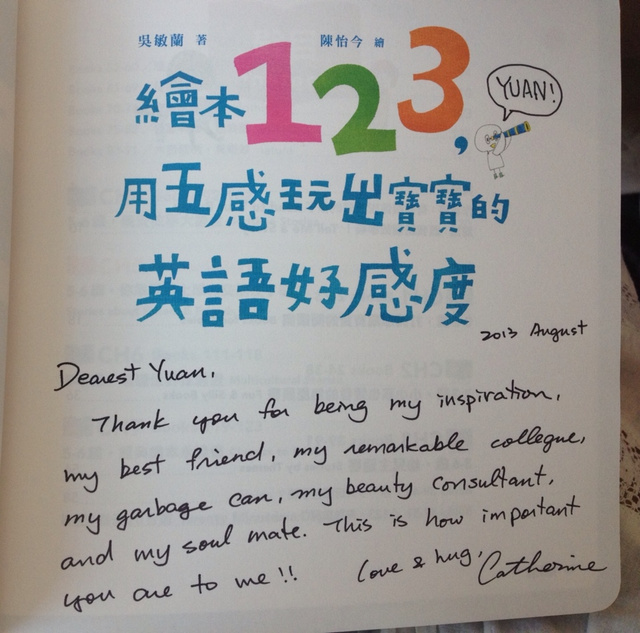 吳敏蘭 著 陳怡今 繪
YUAN!
繪本123,
用五感玩出寶寶的
英語好感度
2013 August
Dearest Yuan,
Thank you for being my inspiration,
my best friend, my remarkable collegue,
my garbage can, my beauty consultant,
and my soul mate. This is how important
you are to me!!
Love & hug,
Catherine